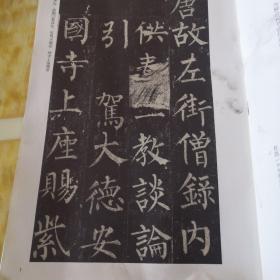 唐故左街僧錄內
供奉三教談論
引 駕大德安
國寺上座賜紫